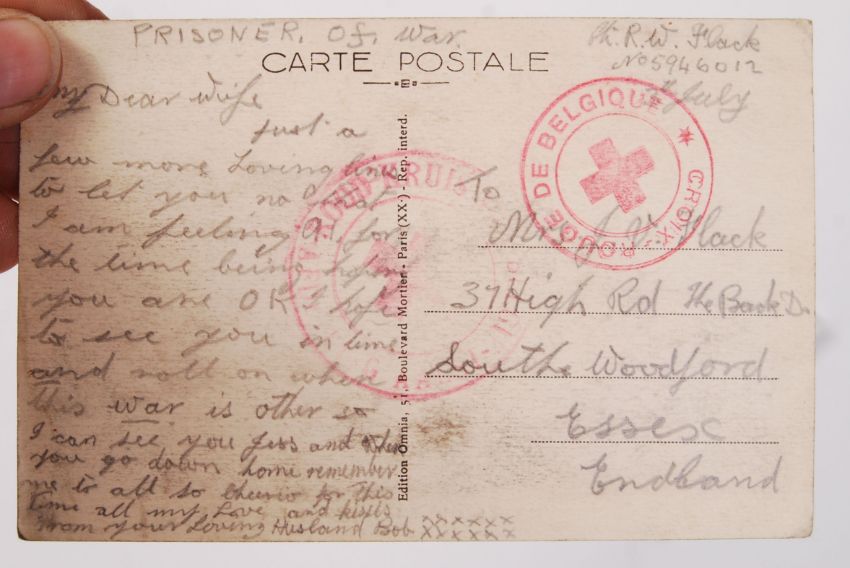 PRISONER. Of. War.
Pte. R.W. Flack
No 5946012
July
CARTE POSTALE
My Dear Wife
Just a
few more Loving lines
to let you no that
I am feeling A1 for
the time being hope
you are OK I hope
to see you in time
and roll on when
this war is other so
I can see you Jess and when
you go down home remember
me to all so cheerio for this
time all my Love and kisses
From your Loving Husband Bob xxxxxx
xxxxxx
Edition Omnia, 51, Boulevard Mortier - Paris (XX°) - Rep. interd.
CROIX-ROUGE DE BELGIQUE
ROODE KRUIS
To
Mrs Flack
37 High Rd The Back D.
Southe Woodford
Essex
Endland